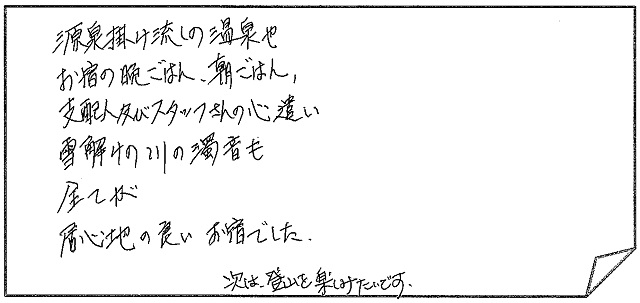 源泉掛け流しの温泉や
お宿の晩ごはん、朝ごはん、
支配人及びスタッフさんの心遣い
雪解けの川の濁音も
全てが
居心地の良いお宿でした.
次は、登山を楽しみたいです.